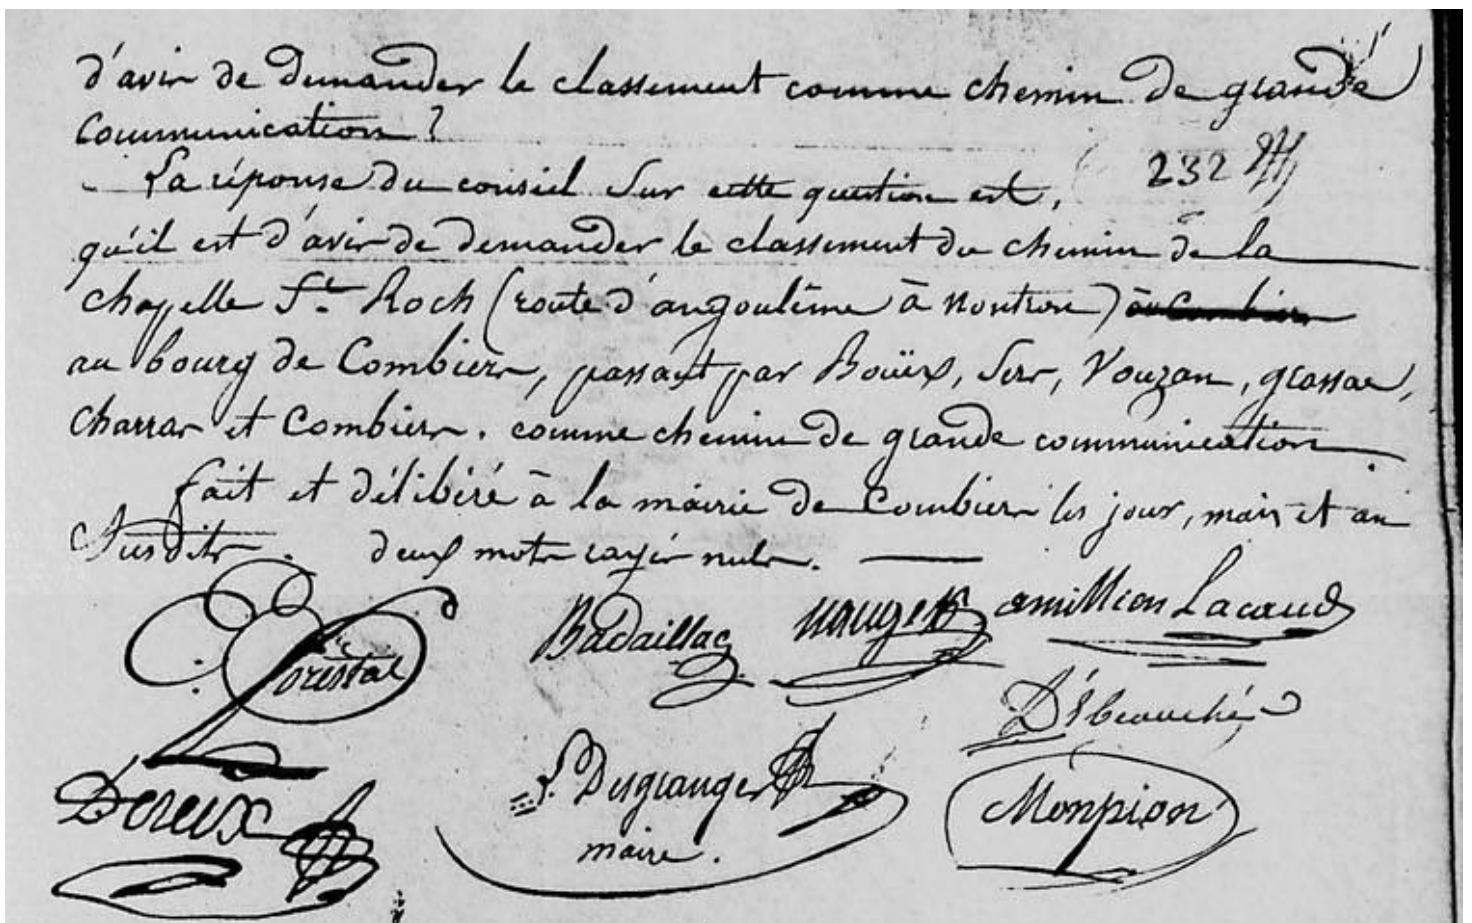 d'avis de demander le classement comme chemin de grande
communication?
232
La réponse du conseil sur cette question est,
qu'il est d'avis de demander le classement du chemin de la
chapelle St Roch (route d'angoulême à Nontron) au Combiers
au bourg de Combiers, passant par Boüëx, Sers, Vouzan, grassac,
charras et Combiers. comme chemin de grande communication
fait et délibéré à la mairie de Combiers les jour, mois et an
Susdits. deux mots rayés nuls.
Forestal
Badaillac
nauge
emillion Lacaud
Débeauché
Dereix
P. Desgranges
maire.
Monpion